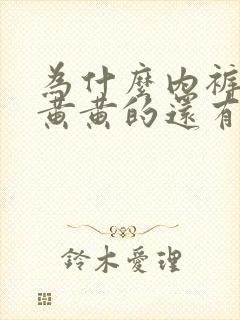 為什麼內褲
黃黃的還有
鈴木愛理